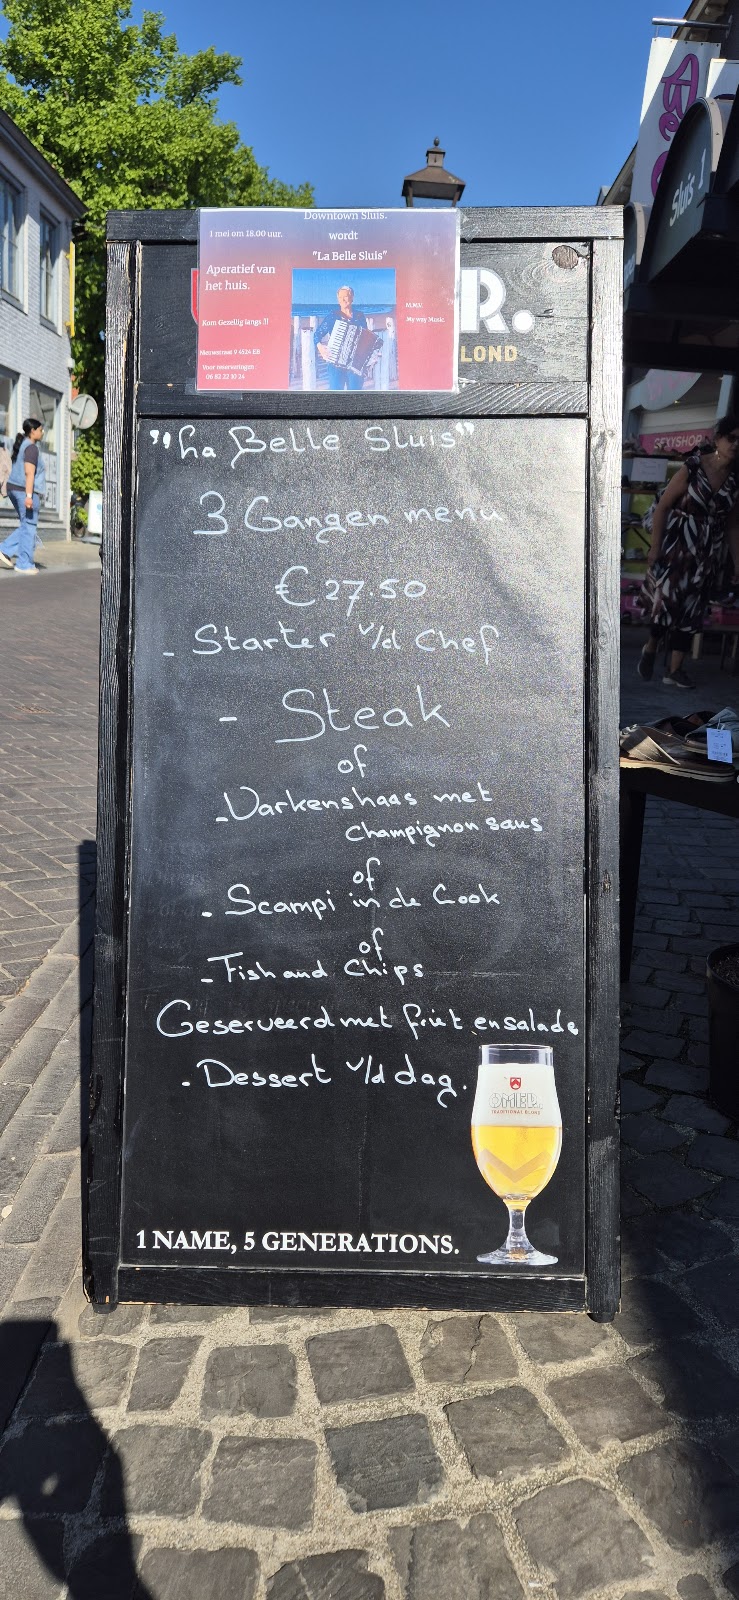 Downtown Sluis.
1 mei om 18.00 uur.
wordt
"La Belle Sluis"
Aperatief van
het huis.
Kom Gezellig langs !!!
M.M.V.
My way Music.
Nieuwstraat 9 4524 EE
Voor reserveringen
06 82 22 30 24
R.
BLOND
"La Belle Sluis"
3 Gangen menu
€27.50
- Starter v/d Chef
- Steak
of
- Varkenshaas met
Champignon saus
of
- Scampi in de Look
of
- Fish and Chips
Geserveerd met friet en salade
- Dessert v/d dag.
OMER.
TRADITIONAL BLOND
1 NAME, 5 GENERATIONS.
Sluis 1
SEXYSHOP